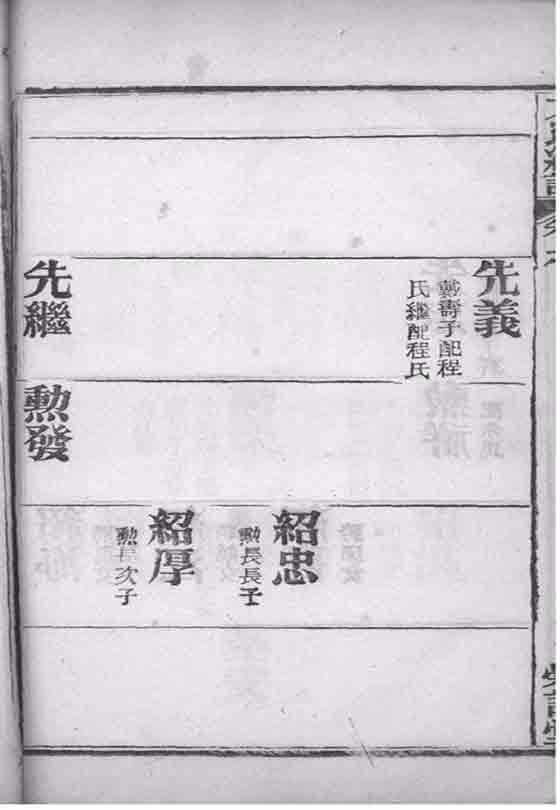 先義
戴壽子配程
氏繼配程氏
紹忠
勲長長子
紹厚
勲長次子
先繼
勲發